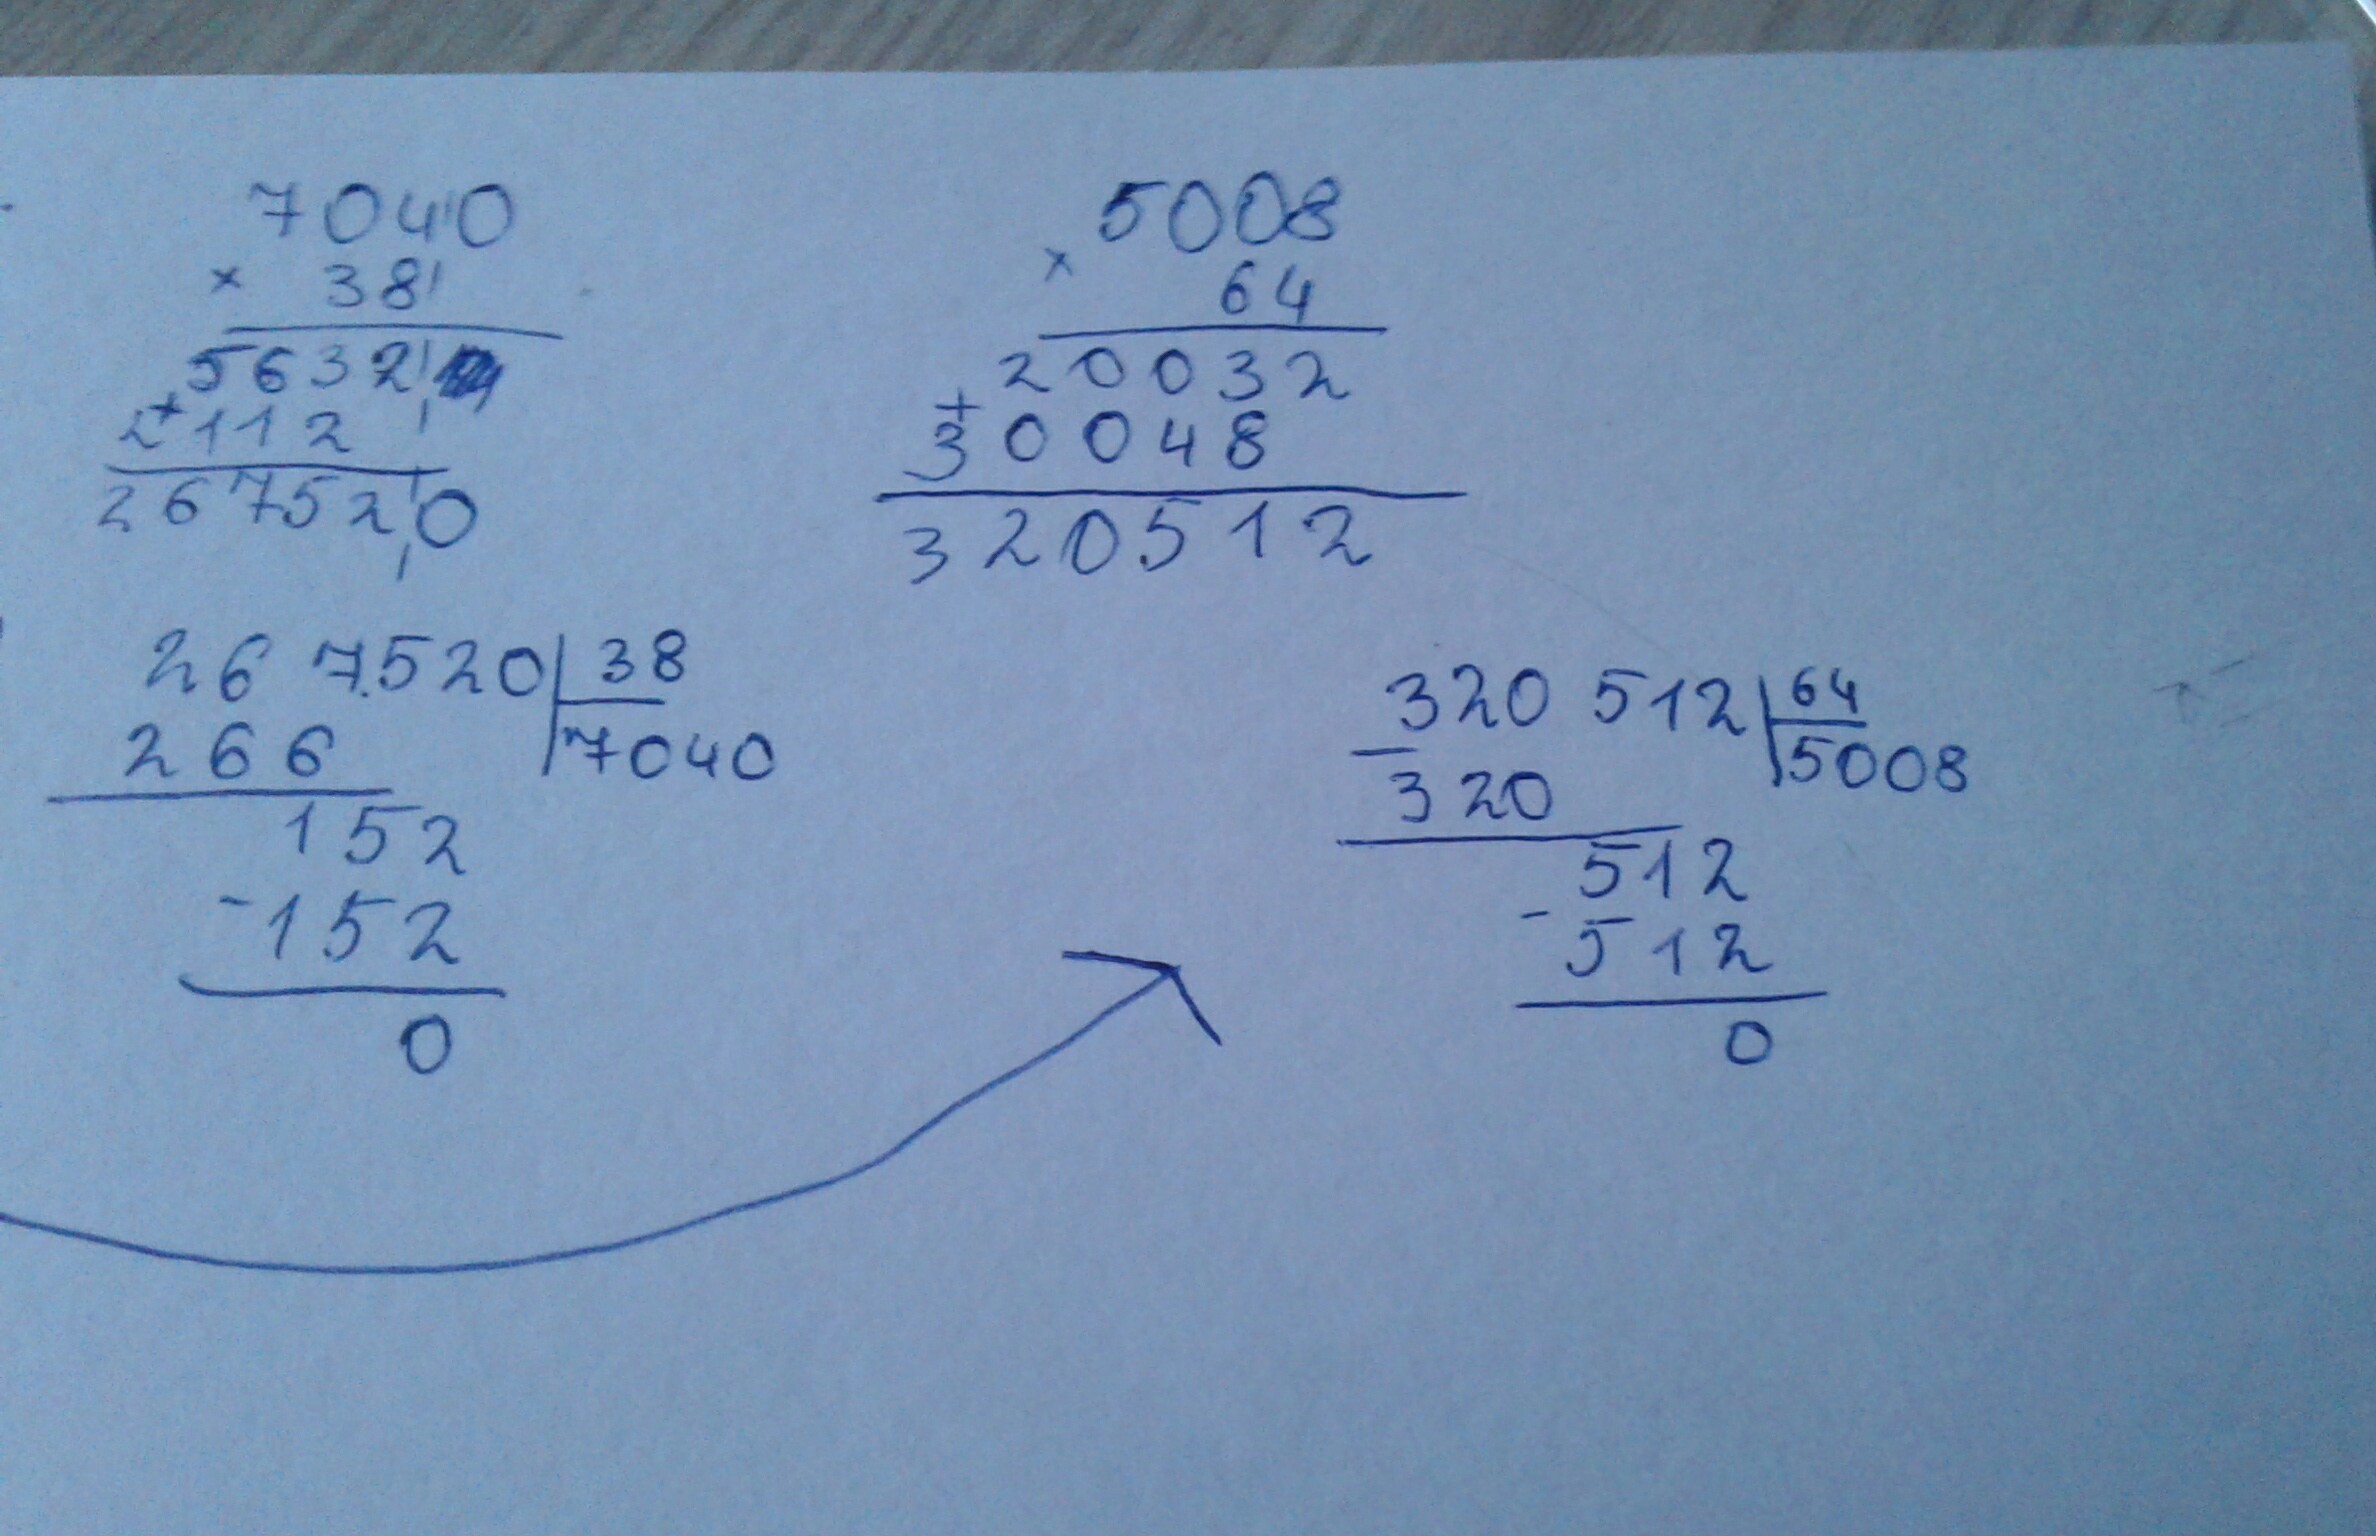 7040
× 38
5632
+
2112
267520
5008
× 64
20032
+
30048
320512
267520 38
266 7040
152
- 152
0
320 512 64
- 5008
320
512
- 512
0